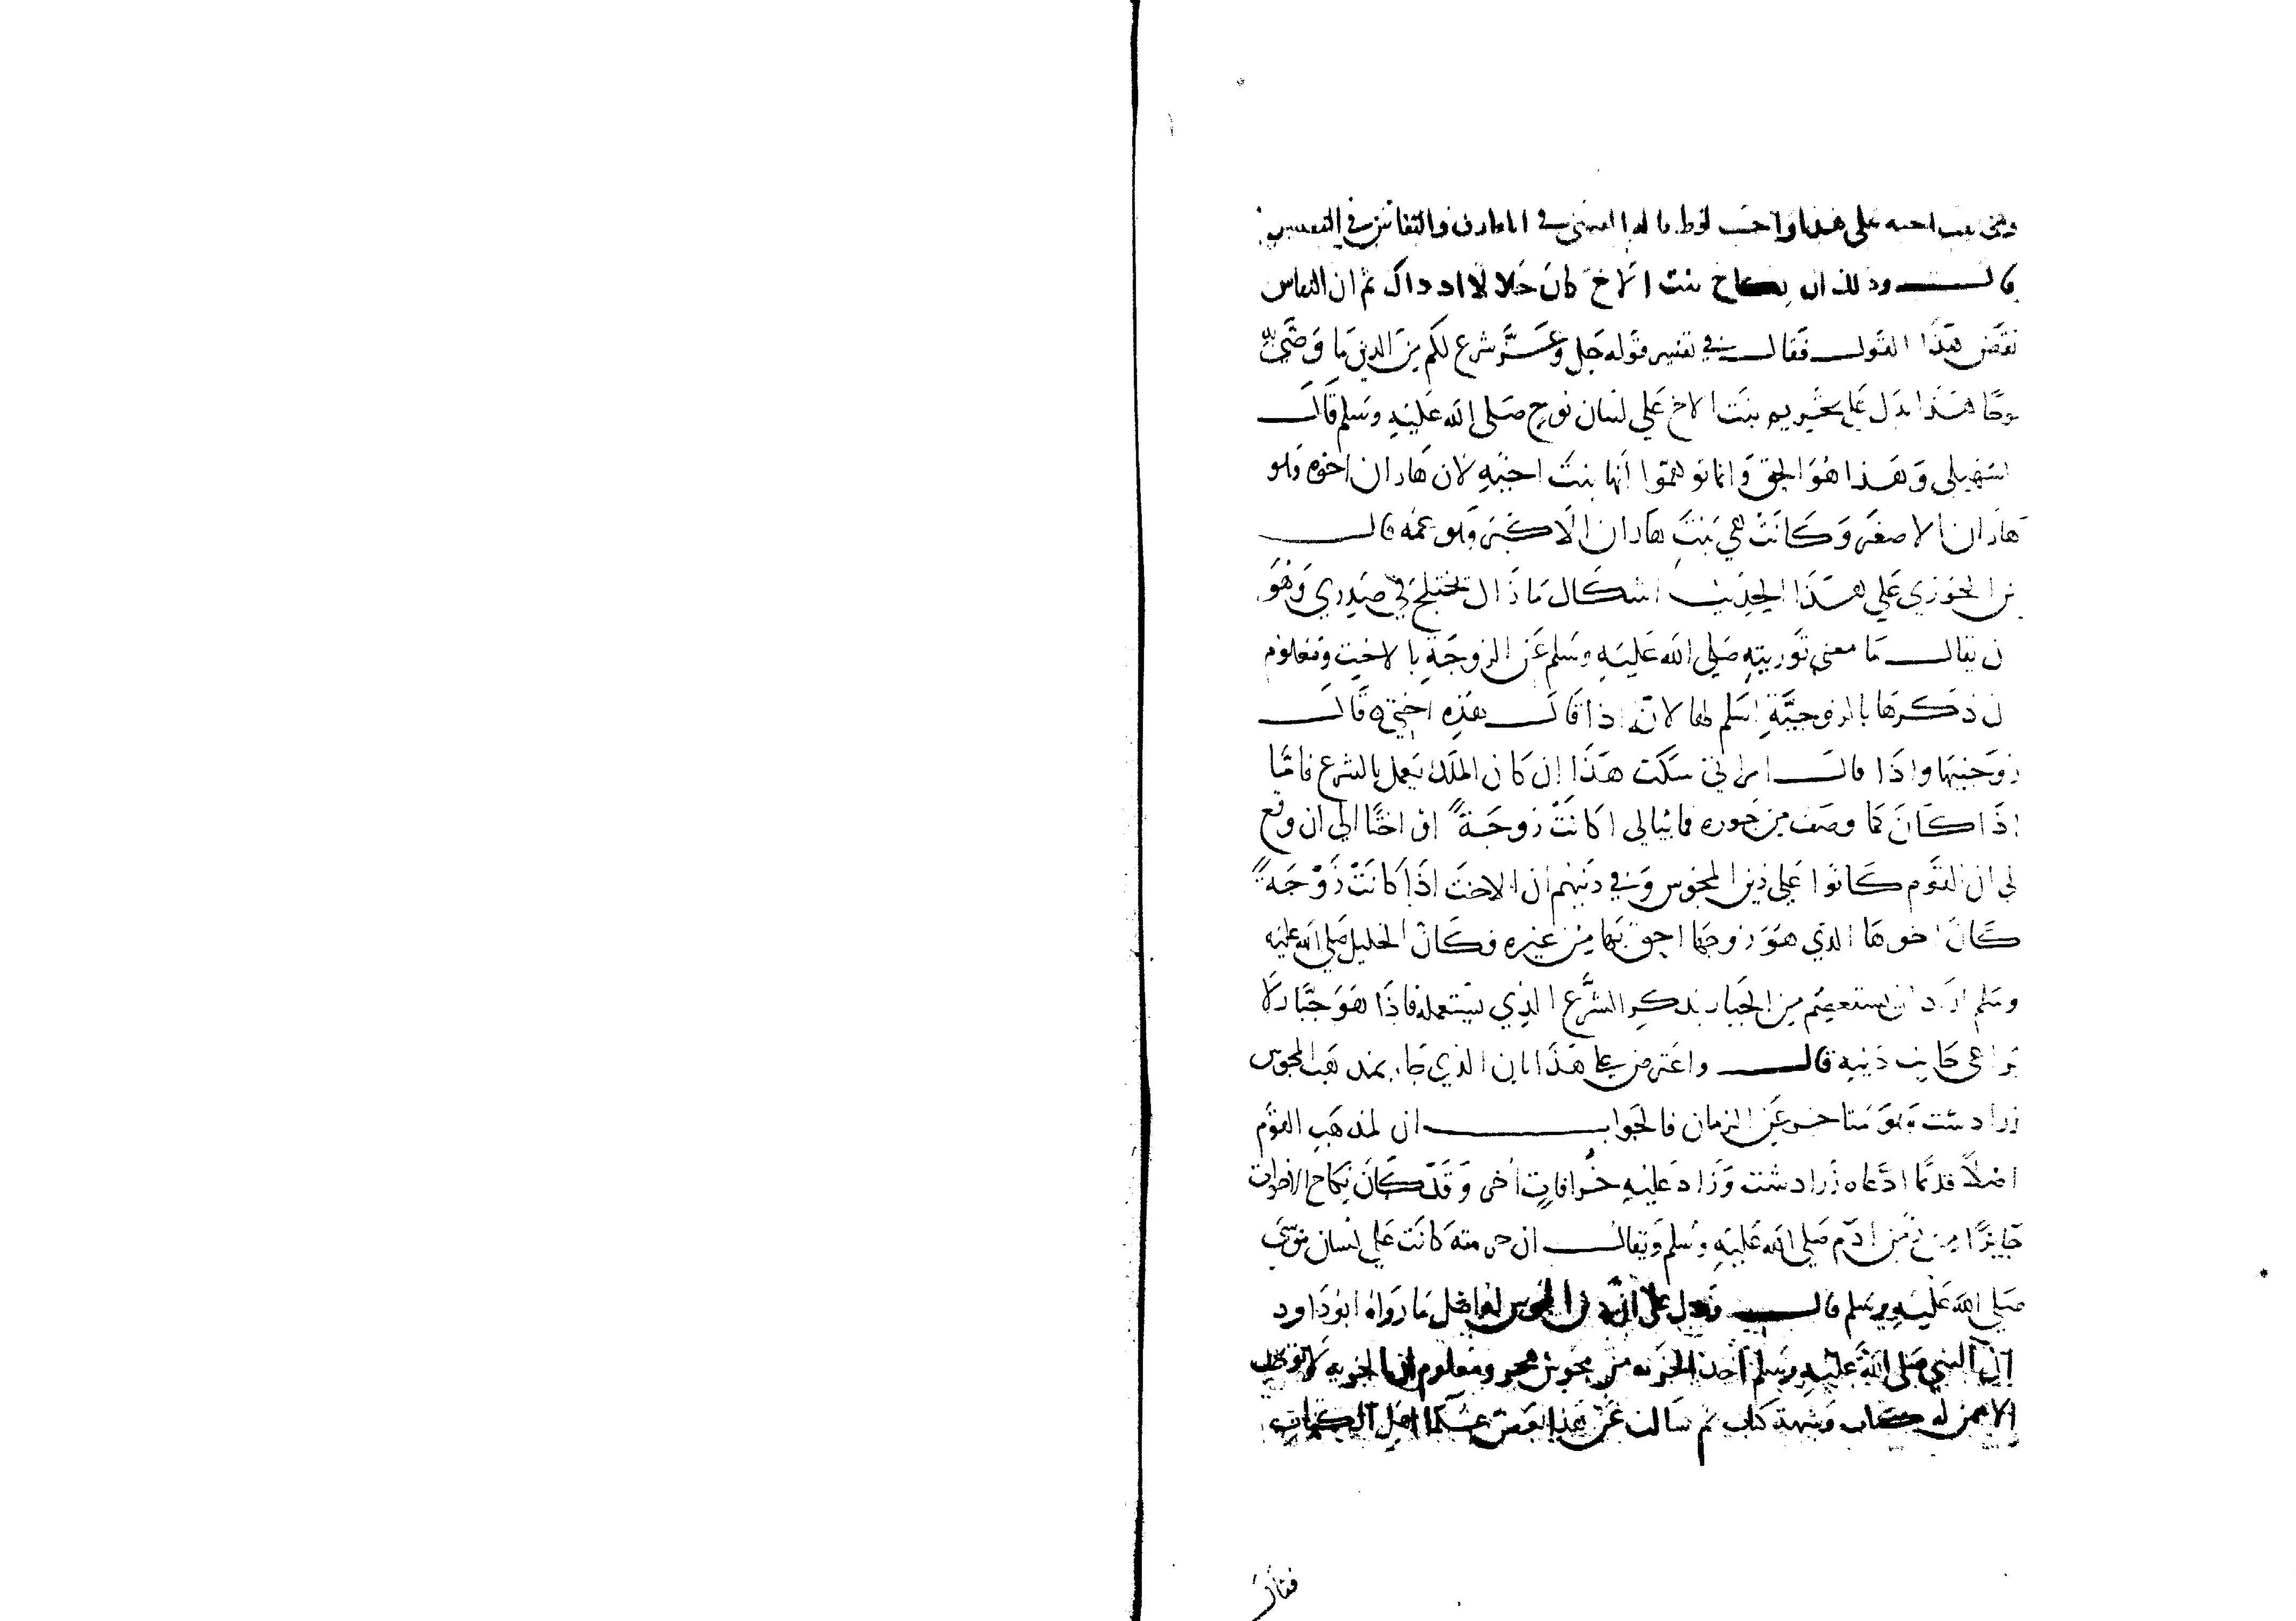 وهي بنت اخيه على هذا واخت لوط قاله القتبي في المعارف والنقاش في التفسير
قال وذلك ان نكاح بنت الاخ كان حلالا اذ ذاك ثم ان النقاش
نقض هذا القول فقال في تفسير قوله جل وعز شرع لكم من الدين ما وصى به
نوحا هذا يدل على تحريم بنت الاخ على لسان نوح صلى الله عليه وسلم قال
السهيلي وهذا هو الحق وانما توهموا انها بنت اخيه لان هاران اخوه وهو
هاران الاصغر وكانت هي بنت هاران الاكبر وهو عمه قال
بن الجوزي على هذا الحديث اشكال ما زال يختلج في صدري وهو
ن يقال ما معنى توريته صلى الله عليه وسلم عن الزوجة بالاخت ومعلوم
ن ذكرها بالزوجية اسلم لها لانه اذا قال هذه اختي قال
زوجنيها واذا قال امراتي سكت هذا ان كان الملك يعمل بالشرع فاما
اذا كان كما وصف من جوره فما يبالي اكانت زوجة او اختا الى ان وقع
لي ان القوم كانوا على دين المجوس وفي دينهم ان الاخت اذا كانت زوجة
كان اخوها الذي هو زوجها احق بها من غيره فكان الخليل صلى الله عليه
وسلم اراد ان يستعصم من الجبار بذكر الشرع الذي يستعمله فاذا هو جبار لا
يراعي جانب دينه قال واعترض على هذا بان الذي جاء بمذهب المجوس
زرادشت وهو متاخر عن الزمان فالجواب ان لمذهب القوم
اصلا قديما ادعاه زرادشت وزاد عليه خرافات اخر وقد كان نكاح الاخوات
جايزا من زمن ادم صلى الله عليه وسلم ويقال ان حرمته كانت على لسان موسى
صلى الله عليه وسلم قال ويدل على ان دين المجوس له اصل ما رواه ابو داود
ان النبي صلى الله عليه وسلم اخذ الجزية من مجوس هجر ومعلوم ان الجزية لا توخذ
الا ممن له كتاب وشبهة كتاب ثم سالت عن هذا بعض علما اهل الكتاب
فقال